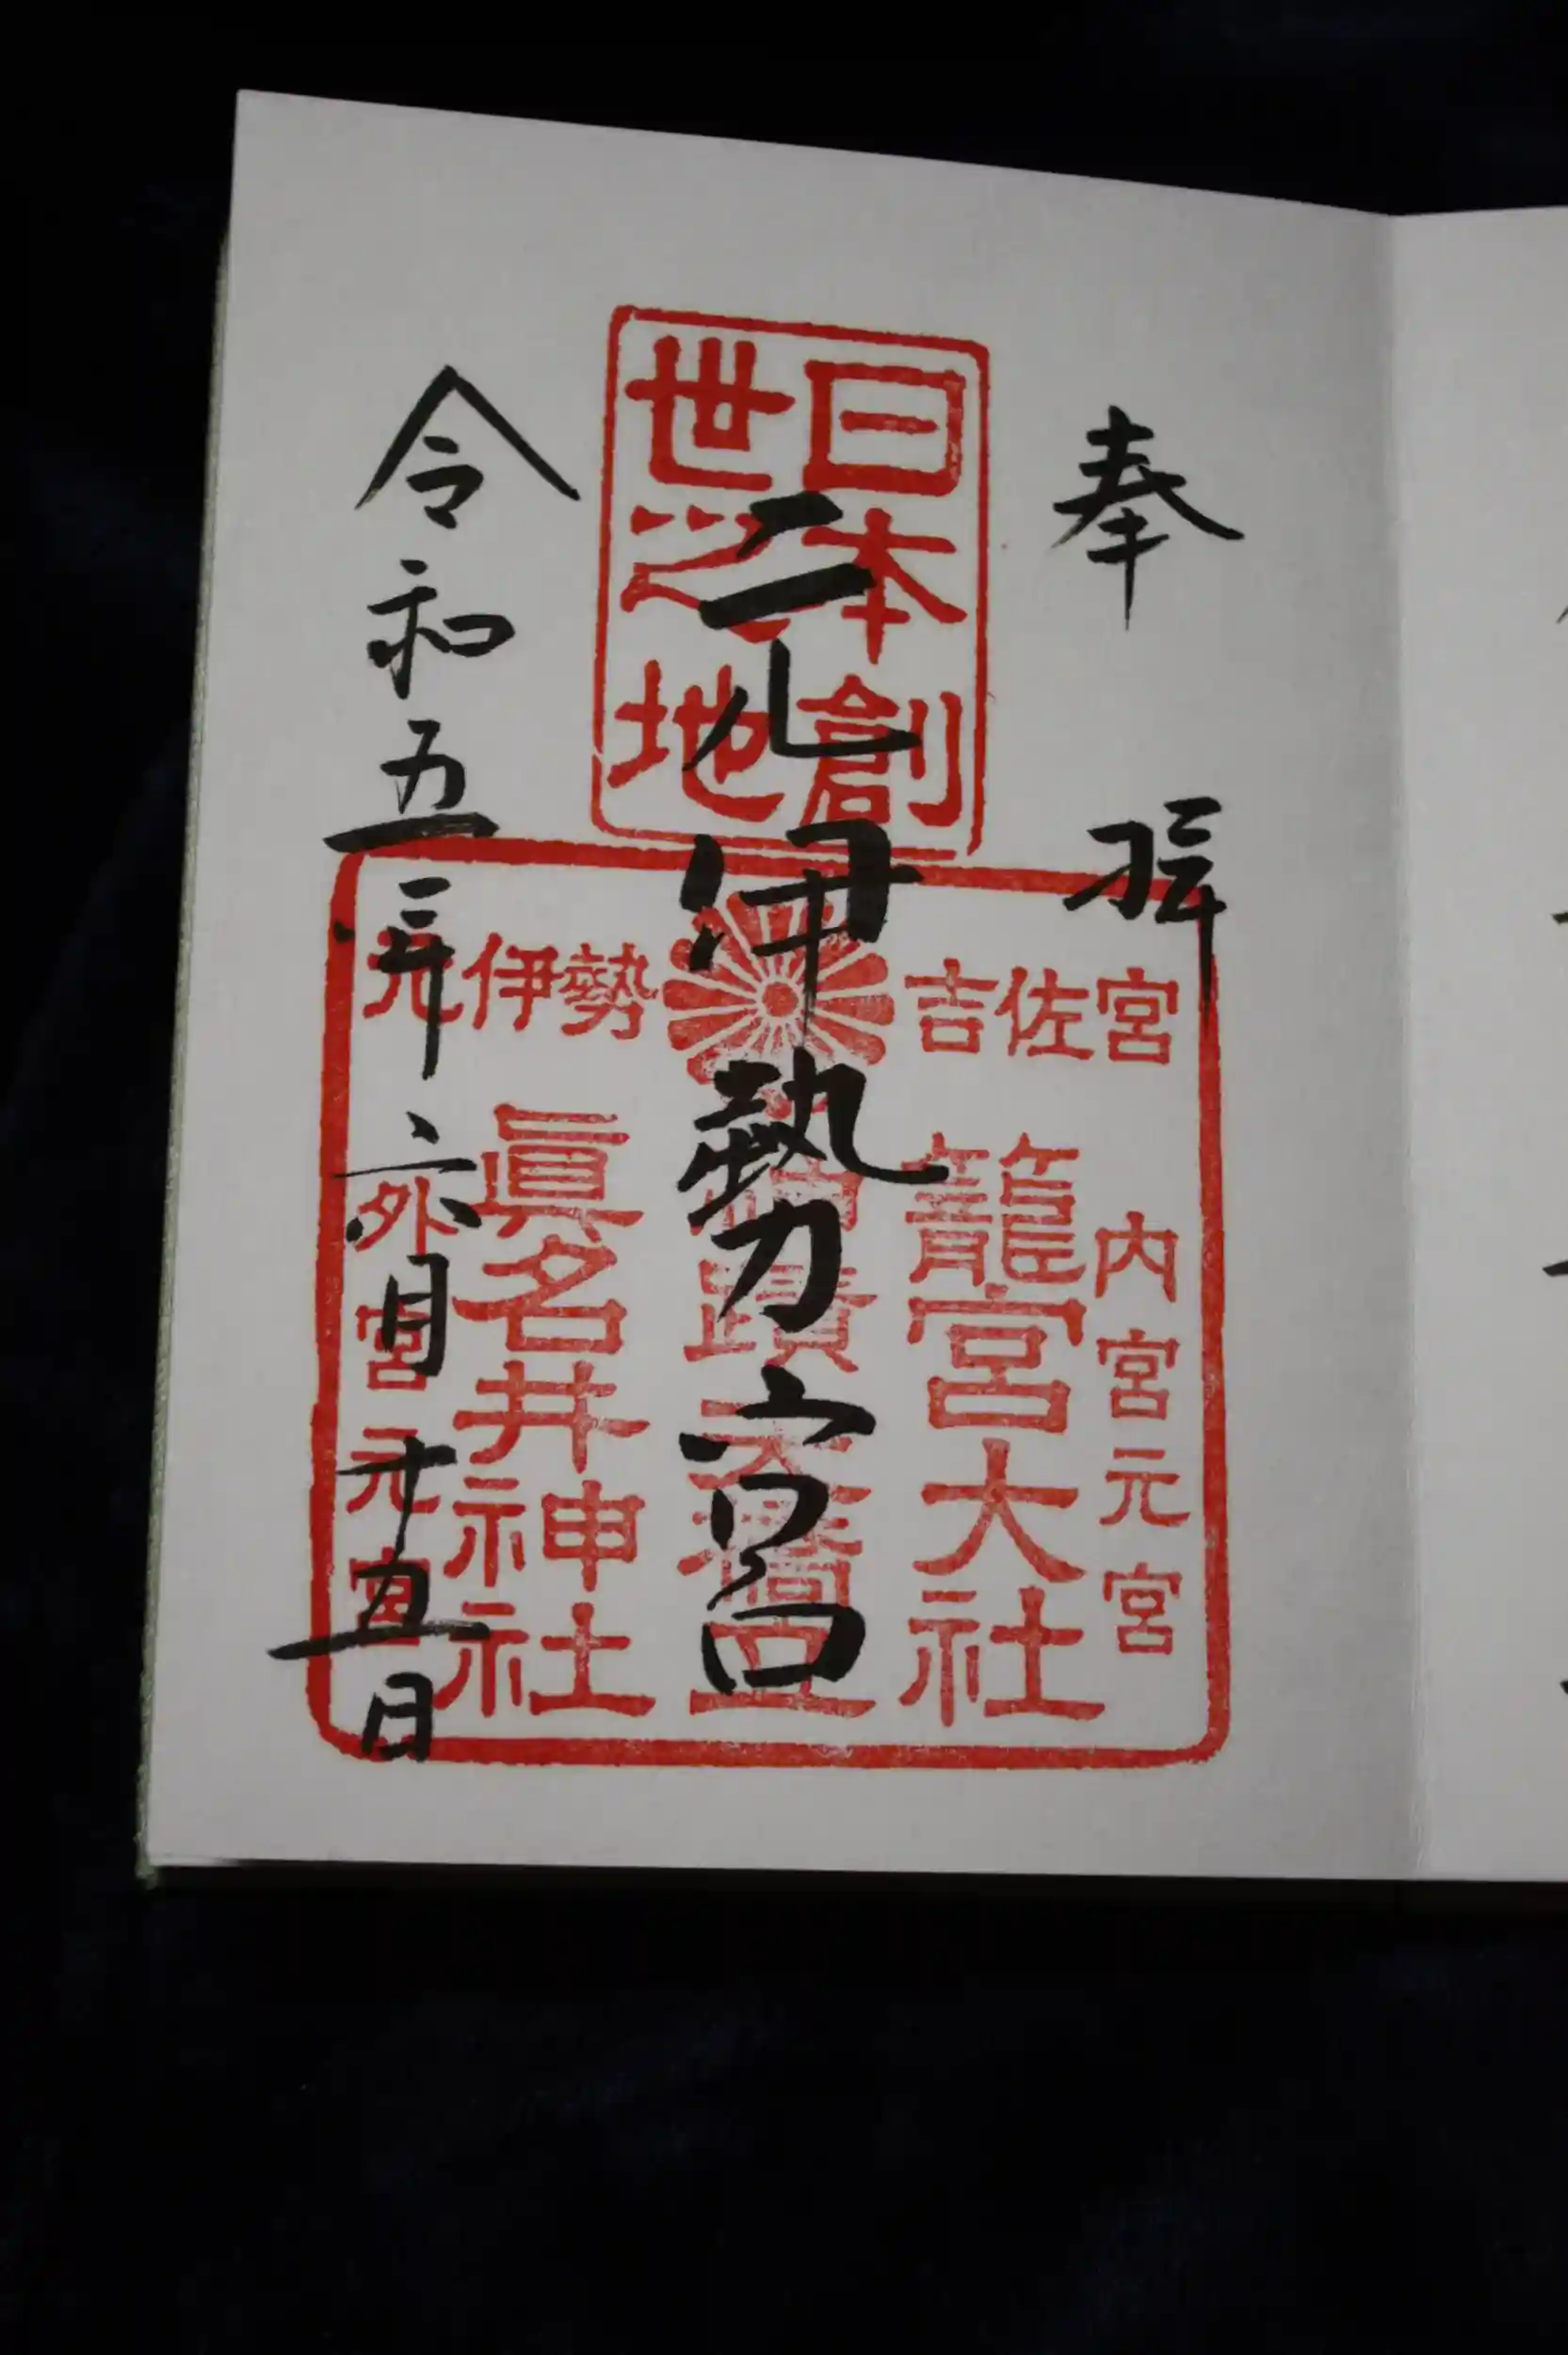 奉拝
日本創
世之地
元伊勢宮
元伊勢
吉佐宮
内宮元宮
籠宮大社
眞名井神社
外宮元宮
令和五年六月十五日